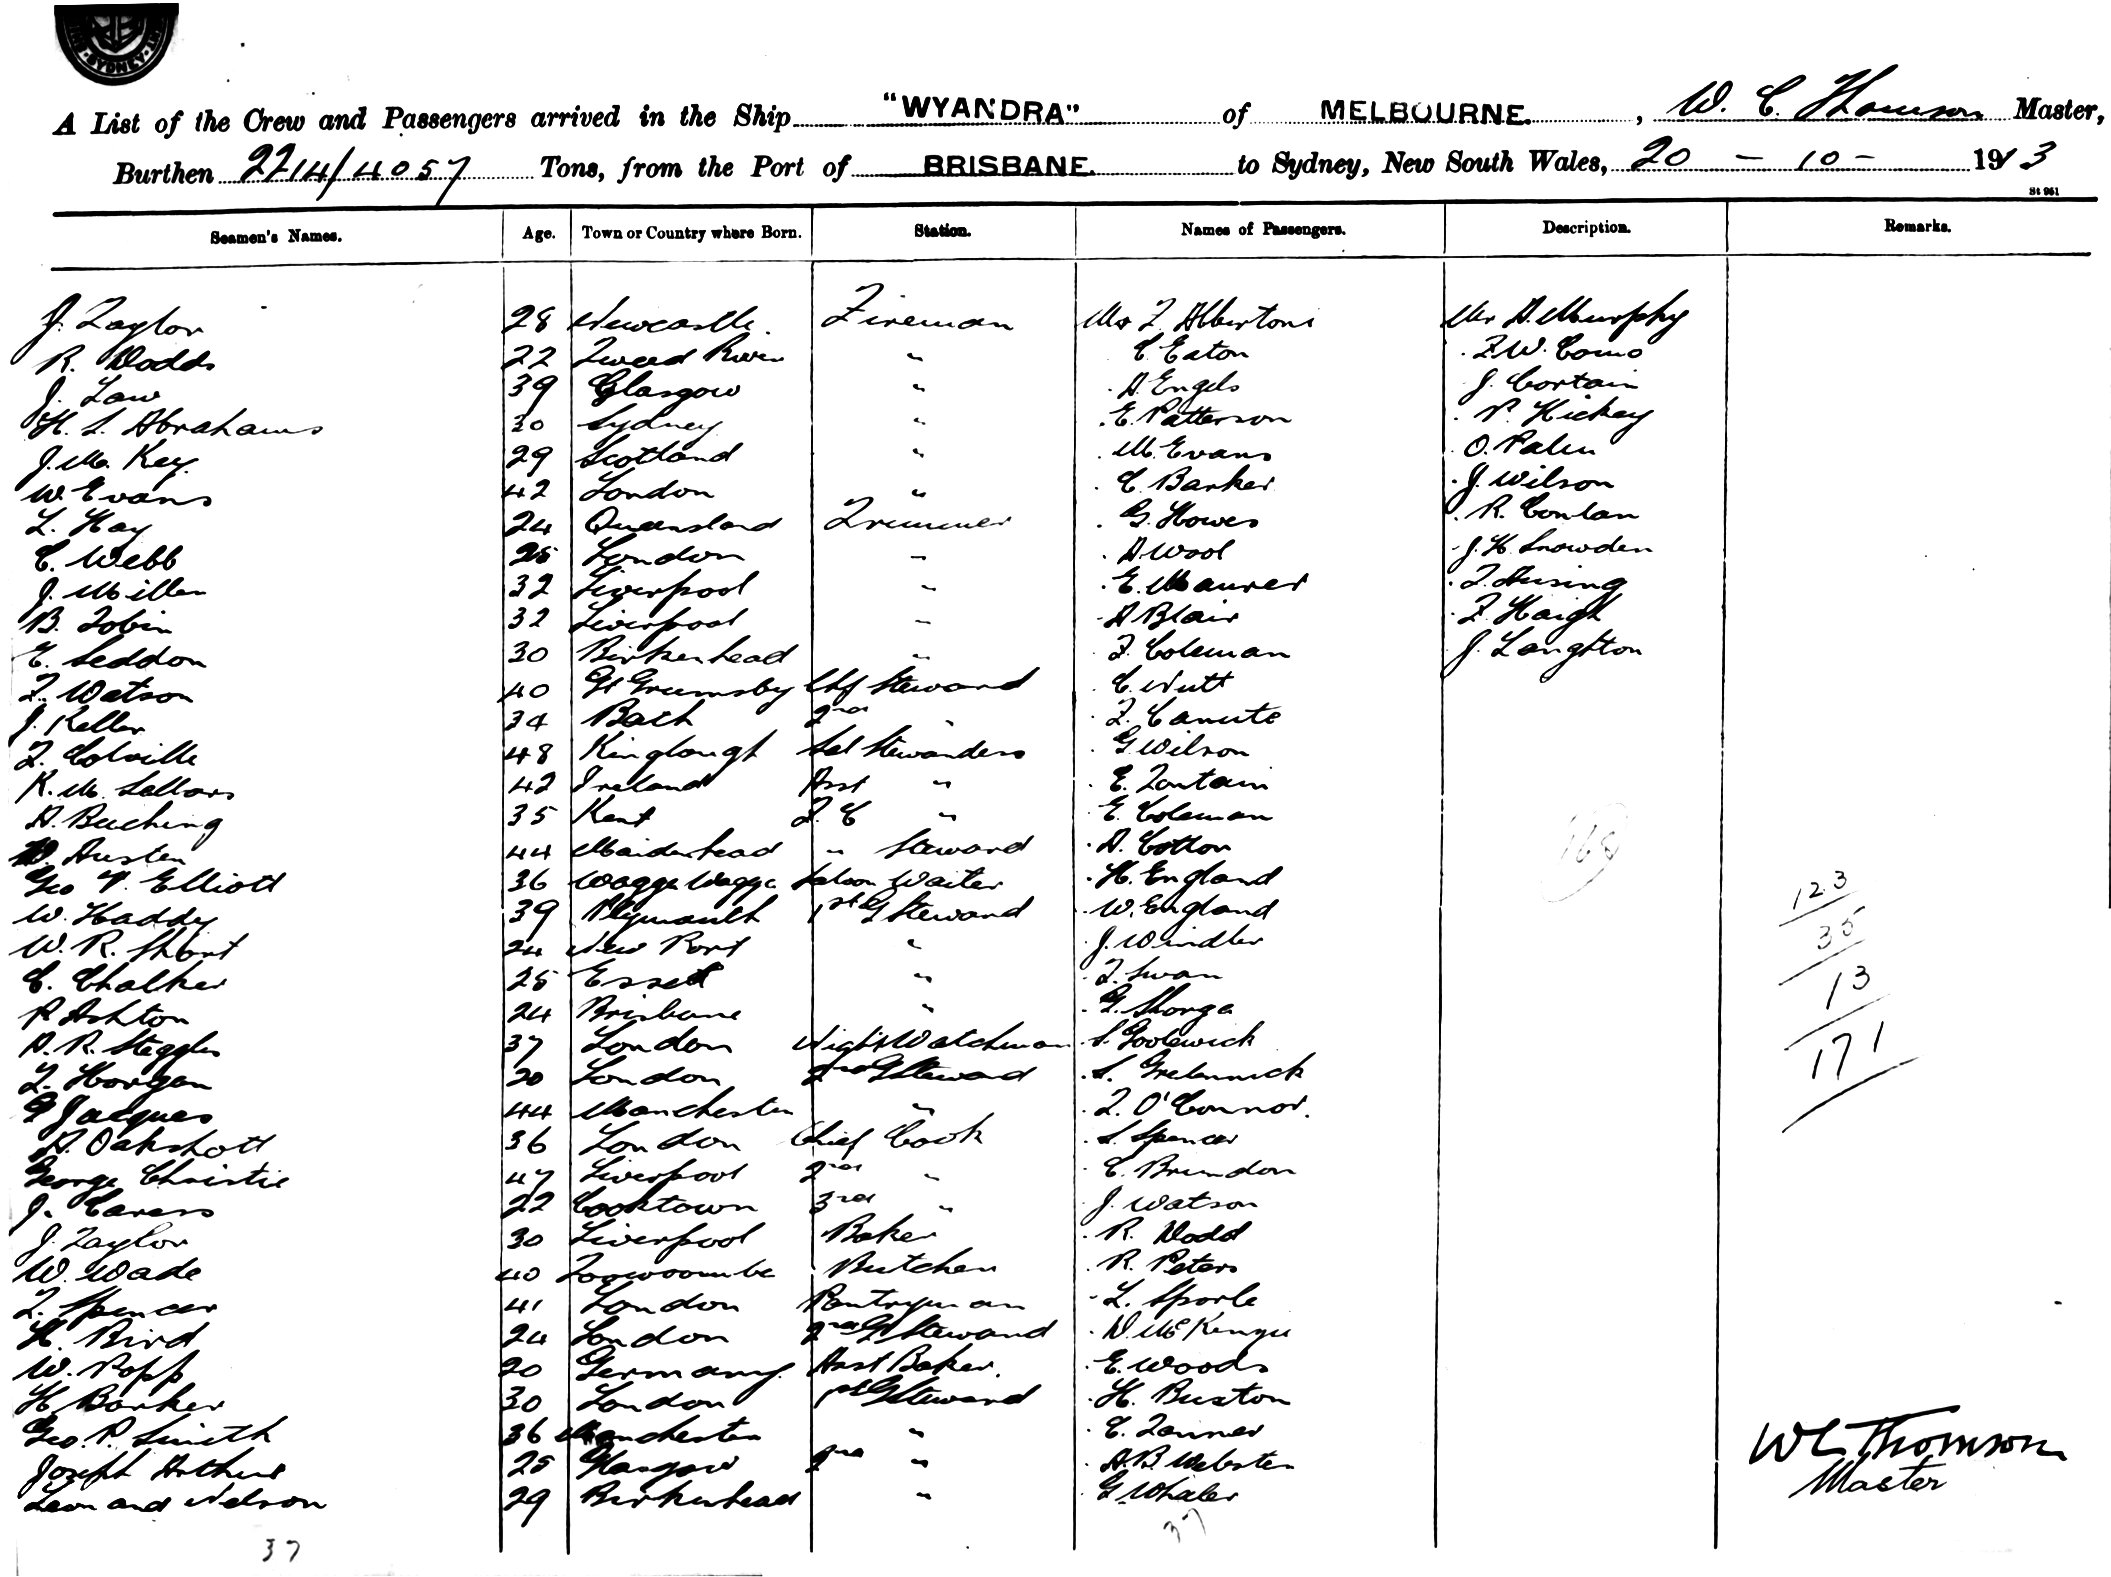 SYDNEY
A List of the Crew and Passengers arrived in the Ship "WYANDRA" of MELBOURNE. , W. C. Thomson Master,
Burthen 2214/4057 Tons, from the Port of BRISBANE. to Sydney, New South Wales, 20 - 10 - 1913
St 961
Seamen's Names. Age. Town or Country where Born. Station. Names of Passengers. Description. Remarks.
J. Taylor 28 Newcastle. Fireman Mr F. Albertoni Mr A. Murphy
R. Dodds 22 Tweed River " C. Eaton F. W. Como
J. Law 39 Glasgow " A. Engels J. Cortain
H. S. Abrahams 30 Sydney " E. Patterson P. Hickey
J. M. Key. 29 Scotland " M. Evans O. Palin
W. Evans 42 London " C. Barker J. Wilson
L. Hay 24 Queensland Trimmer G. Howes R. Conlan
C. Webb 25 London " A Wool J. H. Snowden
J. Miller 32 Liverpool " E. Maurer
B. Tobin 32 Liverpool " A Blair F. Haigh
E. Seddon 30 Birkenhead " F. Coleman J. Langhton
F. Watson 40 Gt Grumsby Chf Steward C. Nutt
J. Keller 34 Bath 2nd " F. Canute
F. Colville 48 Sal Stewardess G. Wilson
K. M. Sellars 42 Ireland Asst " E. Fontain
A. Buching 35 Kent F. C " E. Coleman
W. Austen 44 Maidenhead " Steward A. Cotton
Geo V. Elliott 36 Wagga Wagga Saloon Waiter H. England
W. Haddy 39 Plymouth 1st G Steward W. England
W. R. Short 24 New Port " J. Windler
C. Chalker 25 Essex " F. Swan
R Ashton 24 Brisbane " G. Shorga
A. R. Steggles 37 London Night Watchman S. Goolewick
F. Horgan 20 London 2nd G Steward S.
G Jacques 44 Manchester " F. O'Connor.
A. Oakshott 36 London Chief Cook S. Spencer
George Christie 47 Liverpool 2nd " C. Brindon
J. Caress 22 Cooktown 3rd " J. Watson
J. Taylor 30 Liverpool Baker R. Dodd
W. Wade 40 Toowoomba Butcher R. Peters
F. Spencer 41 London Pantryman L. Sporle
H. Bird 24 London 2nd G Steward D. McKenzie
W. Popp 20 Germany. Asst Baker. E. Woods
H Barker 30 London 1st G Steward H. Buxton
Geo. P. Smith 36 Manchester " C. Tanner
Joseph Arthur 25 Glasgow 2nd " A. B. Webster
Leonard Nelson 29 Birkenhead " G. Whaler
37 37
168
123
35
13
171
W C Thomson
Master